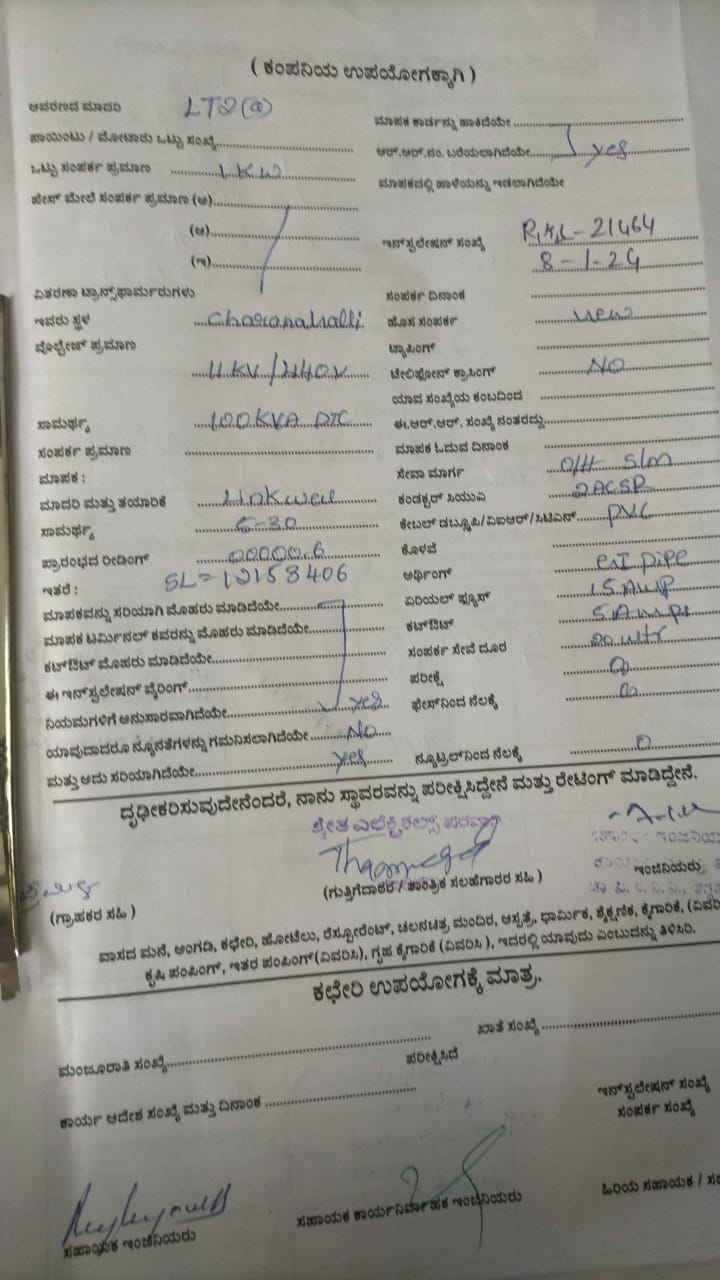 ( ಕಂಪನಿಯ ಉಪಯೋಗಕ್ಕಾಗಿ )
ಆವರಣದ ಮಾದರಿ LT2(a)
ಪಾಯಿಂಟು / ಮೋಟಾರು ಒಟ್ಟು ಸಂಖ್ಯೆ
ಒಟ್ಟು ಸಂಪರ್ಕ ಪ್ರಮಾಣ 1 KW
ಫೇಸ್ ಮೇಲೆ ಸಂಪರ್ಕ ಪ್ರಮಾಣ (ಅ)
(ಆ)
(ಇ)
ವಿತರಣಾ ಟ್ರಾನ್ಸ್‌ಫಾರ್ಮರುಗಳು
ಇವರು ಸ್ಥಳ
ವೊಲ್ಟೇಜ್ ಪ್ರಮಾಣ
11 KV / 440 V
ಸಾಮರ್ಥ್ಯ 100 KVA DTC
ಸಂಪರ್ಕ ಪ್ರಮಾಣ
ಮಾಪಕ :
ಮಾದರಿ ಮತ್ತು ತಯಾರಿಕೆ Linkwell
ಸಾಮರ್ಥ್ಯ 5-30
ಪ್ರಾರಂಭದ ರೀಡಿಂಗ್ 00000.6
ಇತರೆ : SL=12153406
ಮಾಪಕವನ್ನು ಸರಿಯಾಗಿ ಮೊಹರು ಮಾಡಿದೆಯೇ
ಮಾಪಕ ಟರ್ಮಿನಲ್ ಕವರನ್ನು ಮೊಹರು ಮಾಡಿದೆಯೇ
ಕಟ್‌ಔಟ್ ಮೊಹರು ಮಾಡಿದೆಯೇ
ಈ ಇನ್‌ಸ್ಟಲೇಷನ್ ವೈರಿಂಗ್
ನಿಯಮಗಳಿಗೆ ಅನುಸಾರವಾಗಿದೆಯೇ yes
ಯಾವುದಾದರೂ ನ್ಯೂನತೆಗಳನ್ನು ಗಮನಿಸಲಾಗಿದೆಯೇ No
ಮತ್ತು ಅದು ಸರಿಯಾಗಿದೆಯೇ yes
ಮಾಪಕ ಕಾರ್ಡನ್ನು ಹಾಕಿದೆಯೇ
ಆರ್.ಆರ್.ನಂ. ಬರೆಯಲಾಗಿದೆಯೇ yes
ಮಾಪಕದಲ್ಲಿ ಹಾಳೆಯನ್ನು ಇಡಲಾಗಿದೆಯೇ
ಇನ್‌ಸ್ಟಲೇಷನ್ ಸಂಖ್ಯೆ 21464
8-1-24
ಸಂಪರ್ಕ ದಿನಾಂಕ
ಹೊಸ ಸಂಪರ್ಕ new
ಟ್ಯಾಪಿಂಗ್
ಟೇಲಿಫೋನ್ ಕ್ರಾಸಿಂಗ್ NO
ಯಾವ ಸಂಖ್ಯೆಯ ಕಂಬದಿಂದ
ಈ.ಆರ್.ಆರ್. ಸಂಖ್ಯೆ ನಂತರದ್ದು
ಮಾಪಕ ಓದುವ ದಿನಾಂಕ
ಸೇವಾ ಮಾರ್ಗ O/H S/m
ಕಂಡಕ್ಟರ್ ಸಿಯುಎ 2ACSR
ಕೇಬಲ್ ಡಬ್ಲ್ಯೂಪಿ/ವಿಐಆರ್/ಸಿಟಿಎಸ್ PVC
ಕೊಳವೆ
ಅರ್ಥಿಂಗ್ GI pipe
ಏರಿಯಲ್ ಫ್ಯೂಸ್ 15 Amp
ಕಟ್‌ಔಟ್ 5 Amps
ಸಂಪರ್ಕ ಸೇವೆ ದೂರ 20 mtr
ಪರೀಕ್ಷೆ
ಫೇಸ್‌ನಿಂದ ನೆಲಕ್ಕೆ
ನ್ಯೂಟ್ರಲ್‌ನಿಂದ ನೆಲಕ್ಕೆ 0
ದೃಢೀಕರಿಸುವುದೇನೆಂದರೆ, ನಾನು ಸ್ಥಾವರವನ್ನು ಪರೀಕ್ಷಿಸಿದ್ದೇನೆ ಮತ್ತು ರೇಟಿಂಗ್ ಮಾಡಿದ್ದೇನೆ.
ಎಲೆಕ್ಟ್ರಿಕಲ್ಸ್
ಇಂಜಿನಿಯರು
(ಗುತ್ತಿಗೆದಾರರ / ತಾಂತ್ರಿಕ ಸಲಹೆಗಾರರ ಸಹಿ )
(ಗ್ರಾಹಕರ ಸಹಿ )
ವಾಸದ ಮನೆ, ಅಂಗಡಿ, ಕಛೇರಿ, ಹೋಟೆಲು, ರೆಸ್ಟೋರೆಂಟ್, ಚಲನಚಿತ್ರ ಮಂದಿರ, ಆಸ್ಪತ್ರೆ, ಧಾರ್ಮಿಕ, ಶೈಕ್ಷಣಿಕ, ಕೈಗಾರಿಕೆ,
ಕೃಷಿ ಪಂಪಿಂಗ್, ಇತರ ಪಂಪಿಂಗ್(ವಿವರಿಸಿ), ಗೃಹ ಕೈಗಾರಿಕೆ (ವಿವರಿಸಿ ), ಇದರಲ್ಲಿ ಯಾವುದು ಎಂಬುದನ್ನು ತಿಳಿಸಿರಿ.
ಕಛೇರಿ ಉಪಯೋಗಕ್ಕೆ ಮಾತ್ರ.
ಮಂಜೂರಾತಿ ಸಂಖ್ಯೆ
ಖಾತೆ ಸಂಖ್ಯೆ
ಪರೀಕ್ಷಿಸಿದೆ
ಕಾರ್ಯ ಆದೇಶ ಸಂಖ್ಯೆ ಮತ್ತು ದಿನಾಂಕ
ಇನ್‌ಸ್ಟಲೇಷನ್ ಸಂಖ್ಯೆ
ಸಂಪರ್ಕ ಸಂಖ್ಯೆ
ಸಹಾಯಕ ಇಂಜಿನಿಯರು
ಸಹಾಯಕ ಕಾರ್ಯನಿರ್ವಾಹಕ ಇಂಜಿನಿಯರು
ಹಿರಿಯ ಸಹಾಯಕ /